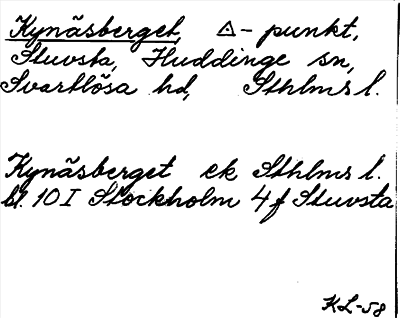 Kynäsberget, △-punkt,
Stuvsta, Huddinge sn,
Svartlösa hd, Sthlms l.
Kynäsberget ek Sthlms l.
bl. 10 I Stockholm 4 f Stuvsta
KL-58